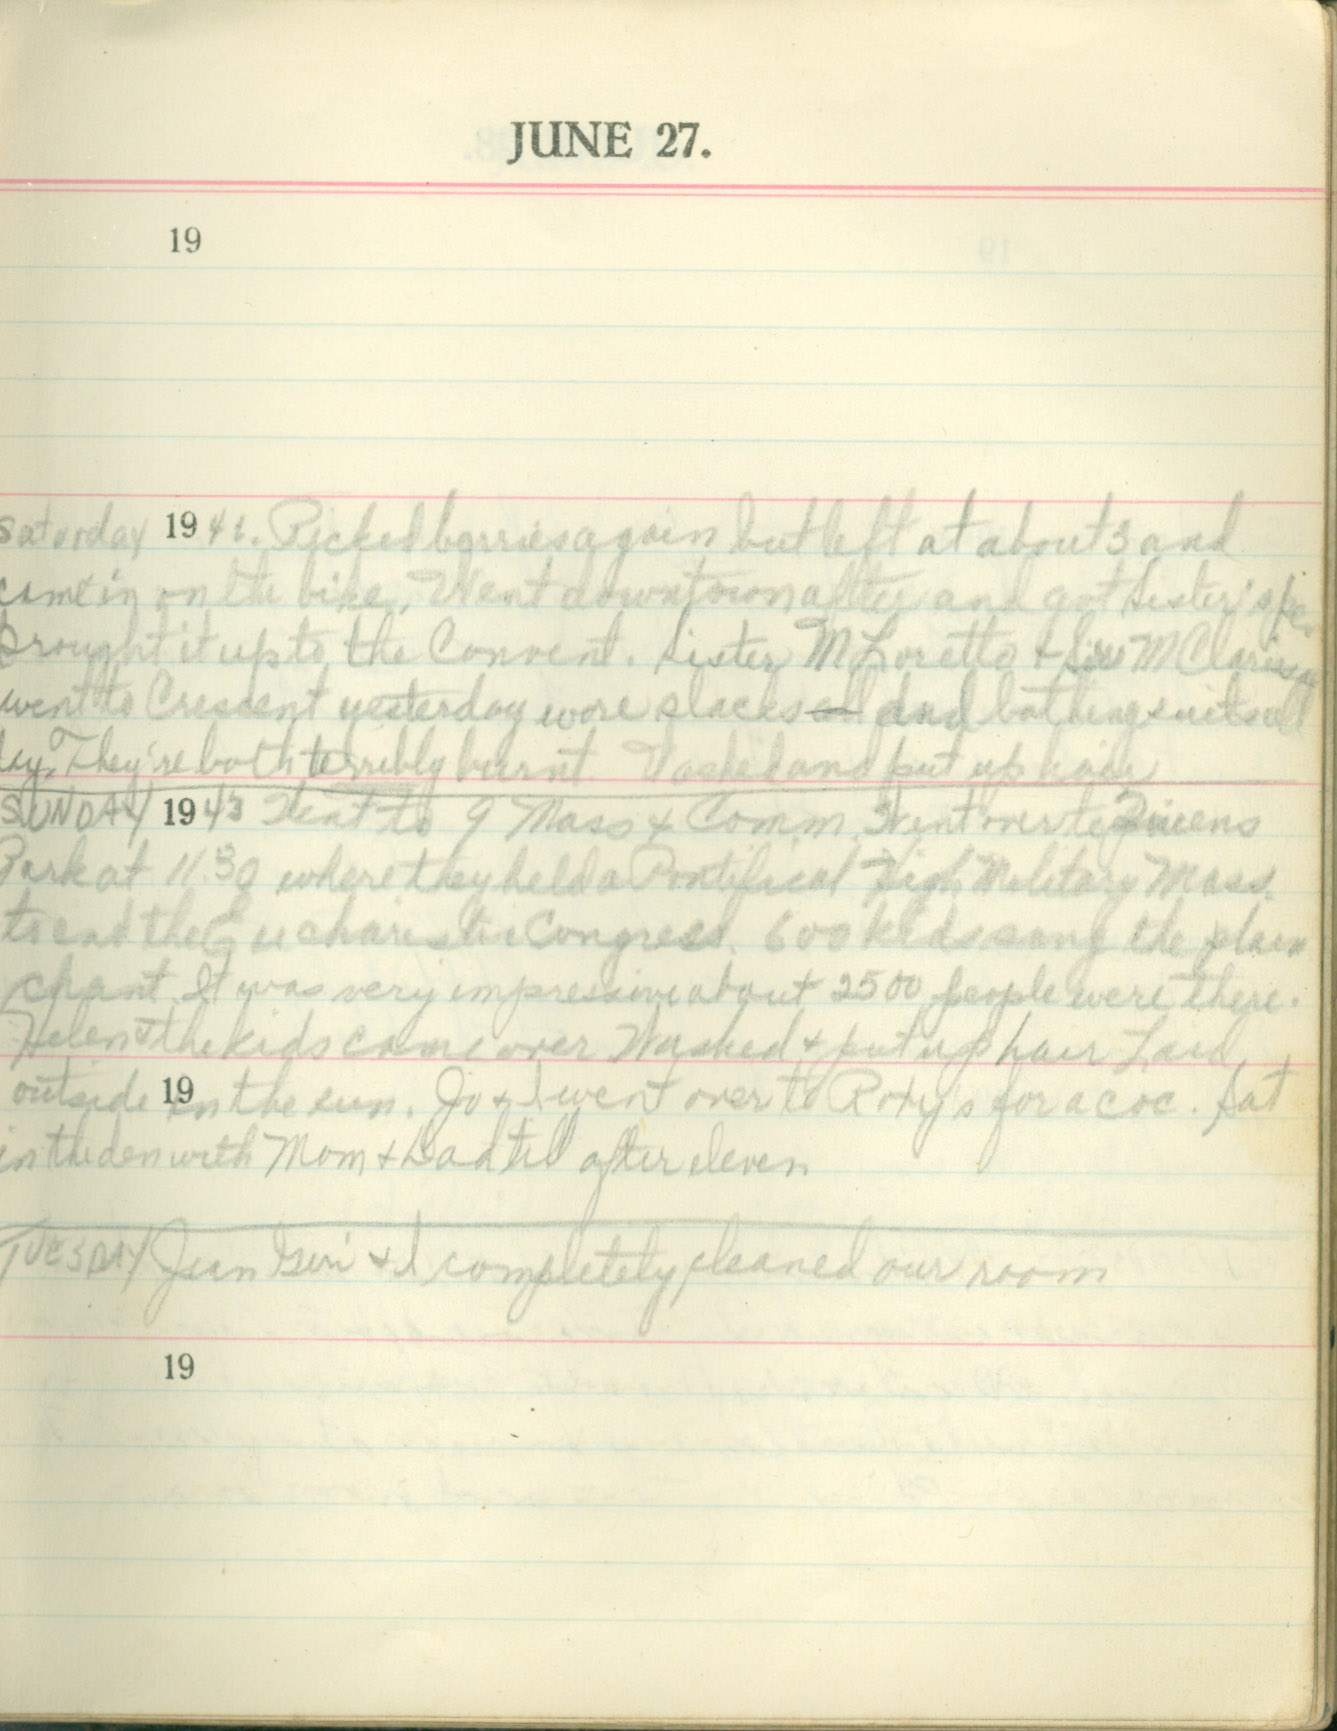 JUNE 27.
19
Saturday 1942. Picked berries again but left at about 3 and
came in on the bike. Went downtown after and got Sister's pen
brought it up to the Convent. Sister M Loretto & Sister M Clarissa
went to Crescent yesterday wore slacks and bathing suits all
day. They're both terribly burnt. Washed and put up hair
SUNDAY 1943 Went to 9 Mass & Comm. Went over to Queens
Park at 11:30 where they held a Pontifical High Military Mass.
to end the Eucharistic Congress. 600 kids sang the plain
chant. It was very impressive about 2500 people were there.
Helen & the kids came over Washed & put up hair Laid
outside 19 in the sun. Jo & I went over to Roxy's for a coc. Sat
in the den with Mom & Dad til after eleven
TUESDAY Jean Geri & I completely cleaned our room
19